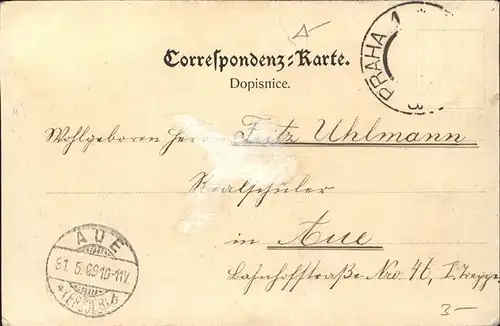 Correspondenz-Karte.
Dopisnice.
PRAHA 1
Wohlgeboren Herr Fritz Uhlmann
Realschüler
in Aue
Bahnhofstraße Nro. 46, I. Treppe
AUE
31. 5. 99 10-11V.
*(ERZGEB.)
3-